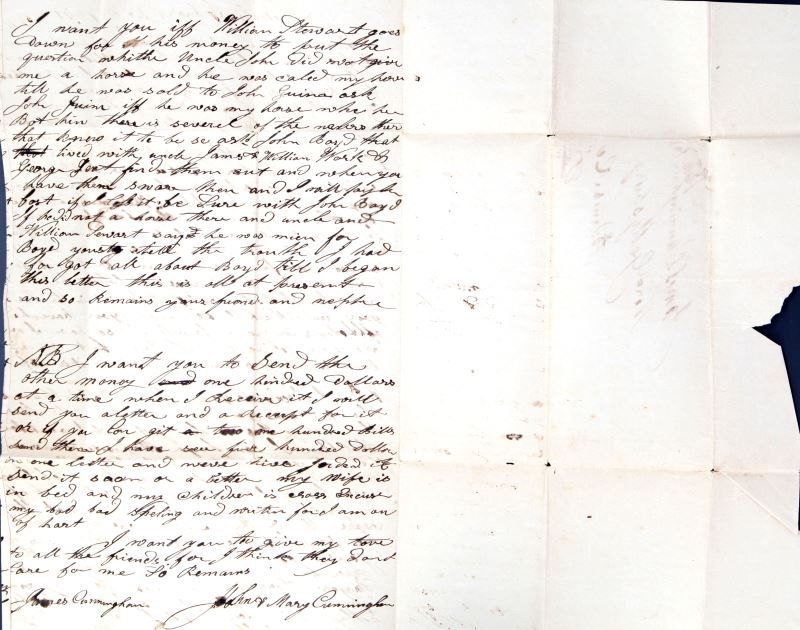 I want you iff William Stewart goes
Down for his money to put the
question whithe Uncle John did not give
me a horse and he was caled my hors
till he was sold to John Guinn ask
John Guinn iff he was my horse whe he
Bot him there is severel of the nabors ther
that know it to be so ask John Boyd that
lived with uncle James & William Work &
George find them out and when you
have them swarn then and I will pay the
Cost if be Sure with John Boyd
I had not a horse there and uncle and
William Stewart says he was mien for
Boyd to tell the trouth I had
for got all about Boyd till I began
this letter this is all at present
and so Remains your friend and nephe
NB I want you to Send the
other money one hundred Dollars
at a time when I Receive it I will
send you a letter and a Receipt for it
or if you Can git one hundred Bills
send them I have see five hundred Dollar
in one letter and
Send it soon or a letter my Wife is
in bed and my Children is cross Excuse
my bad bad Speling and writen for I am on
of hart
I want you to give my love
to all the friends for I think they dont
Care for me So Remains
James Cunningham John & Mary Cunningham